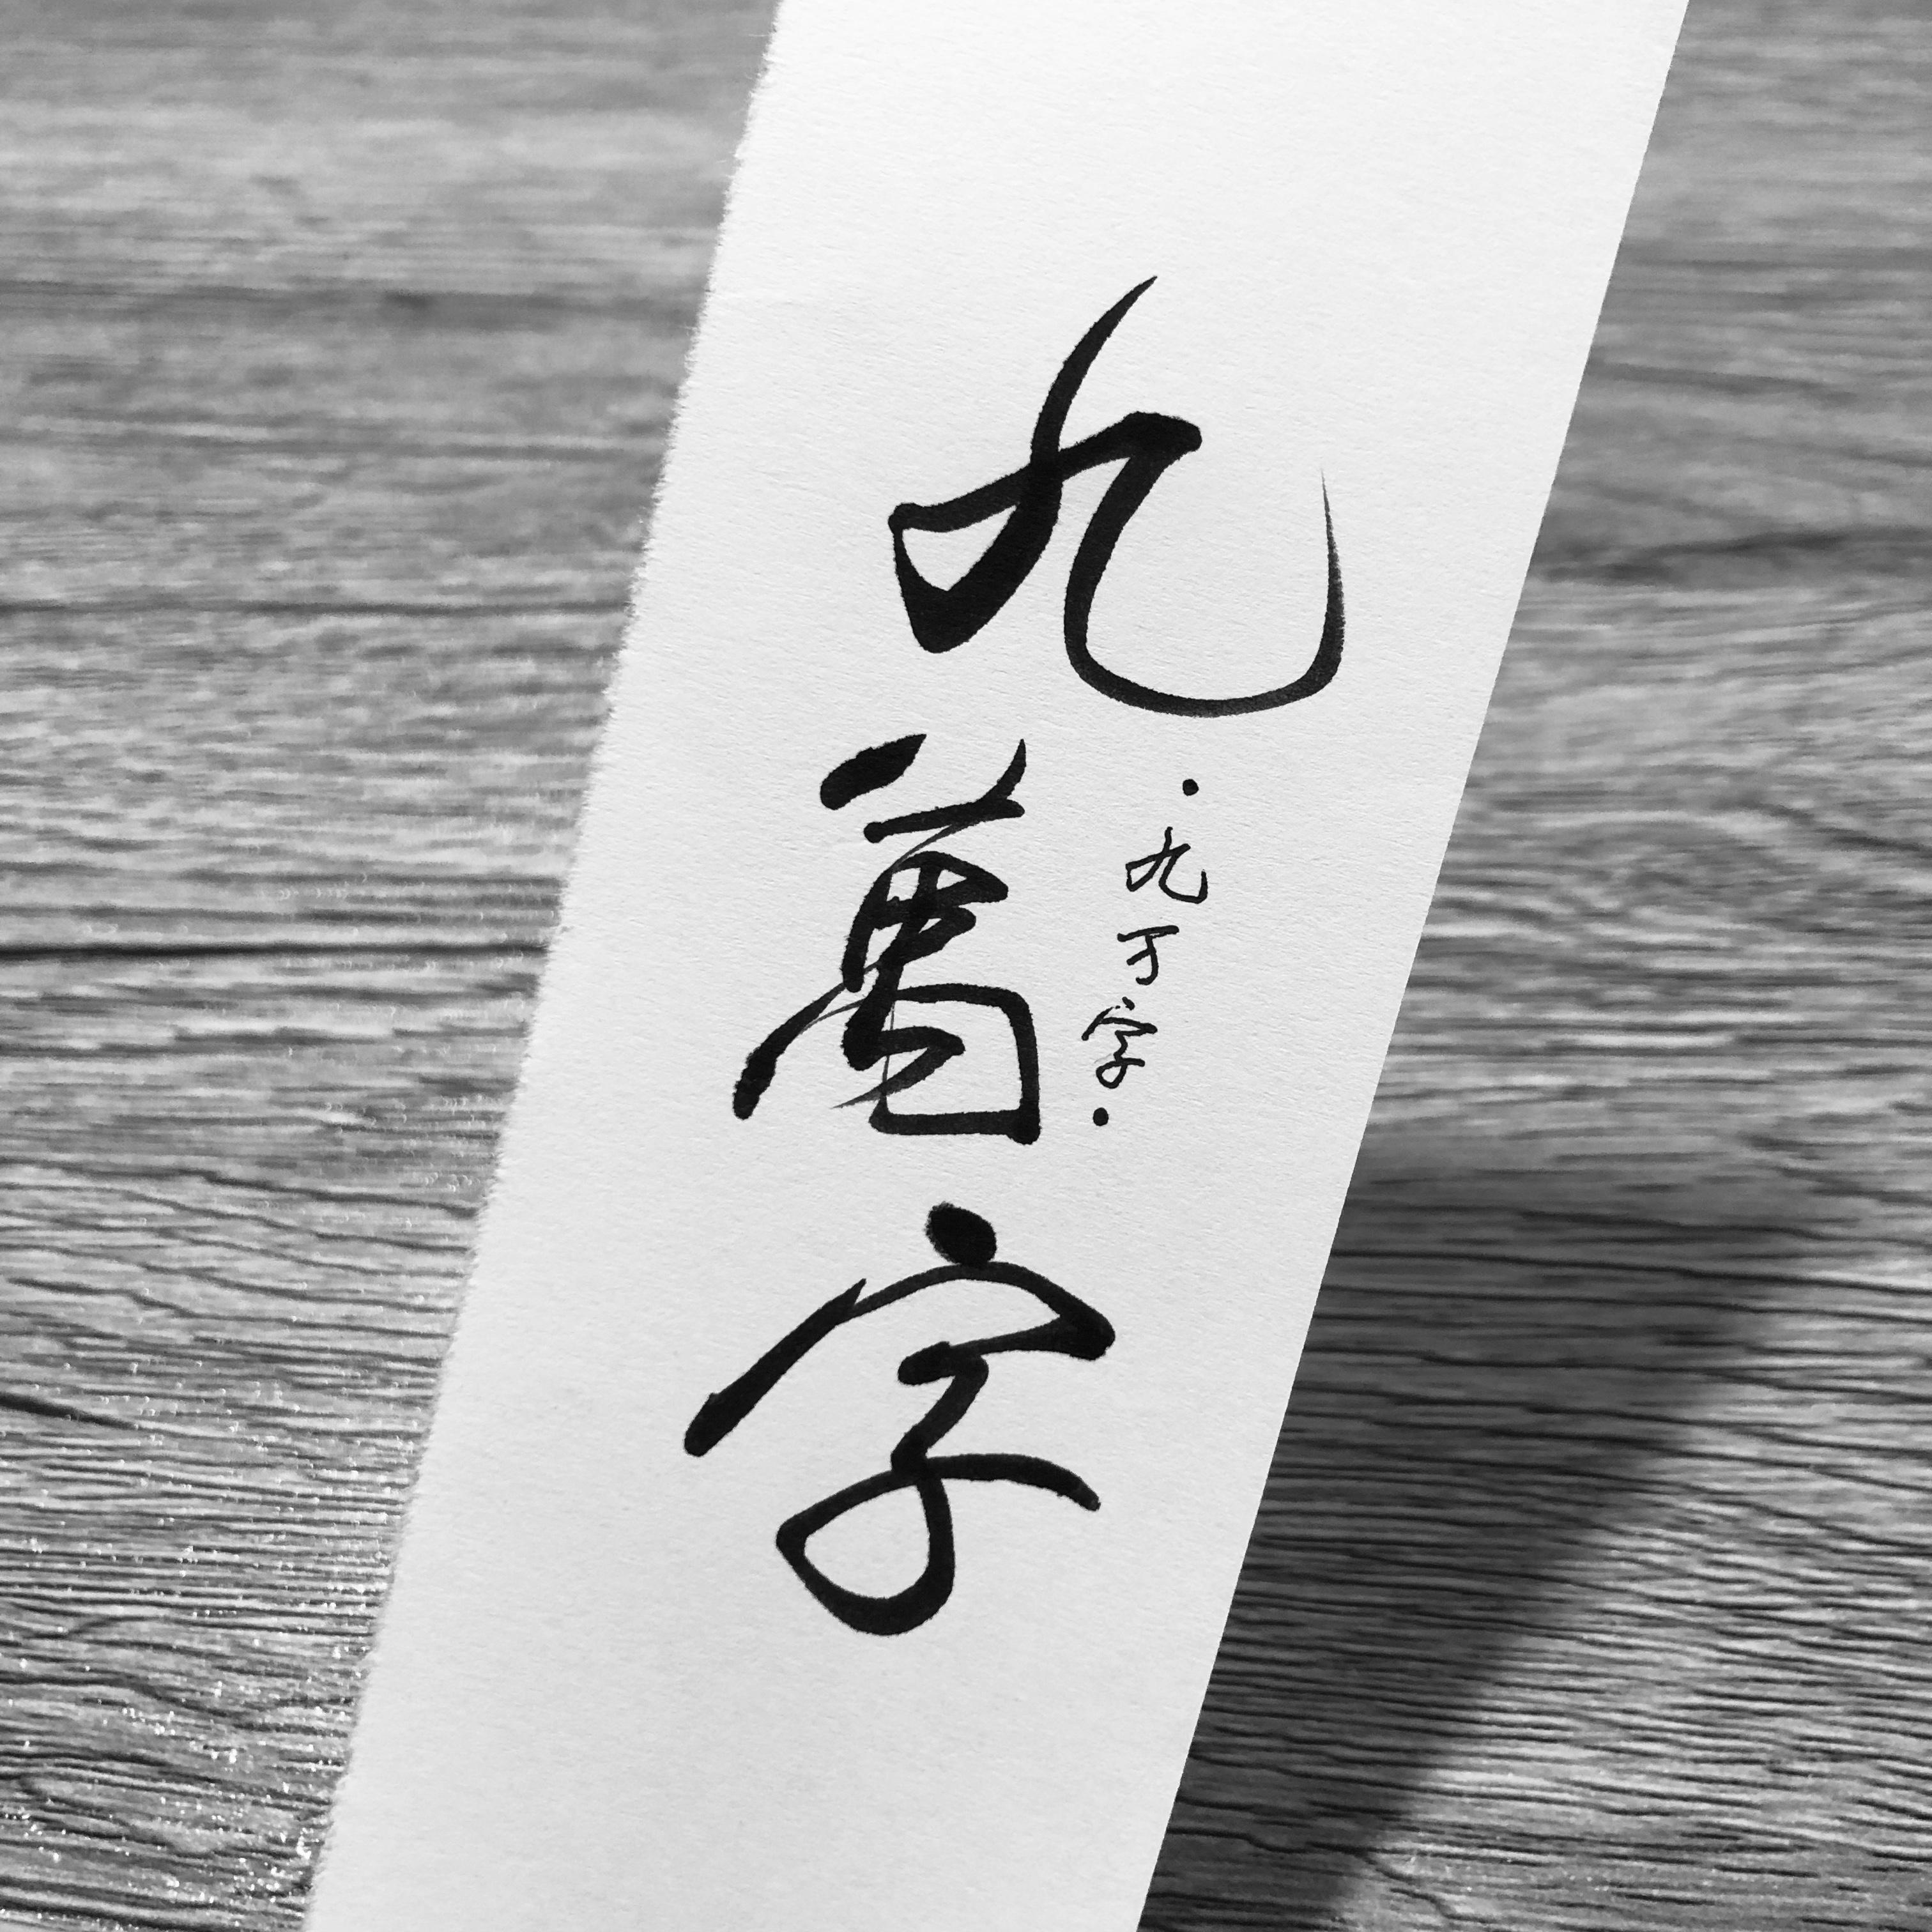 九萬字
·九万字·